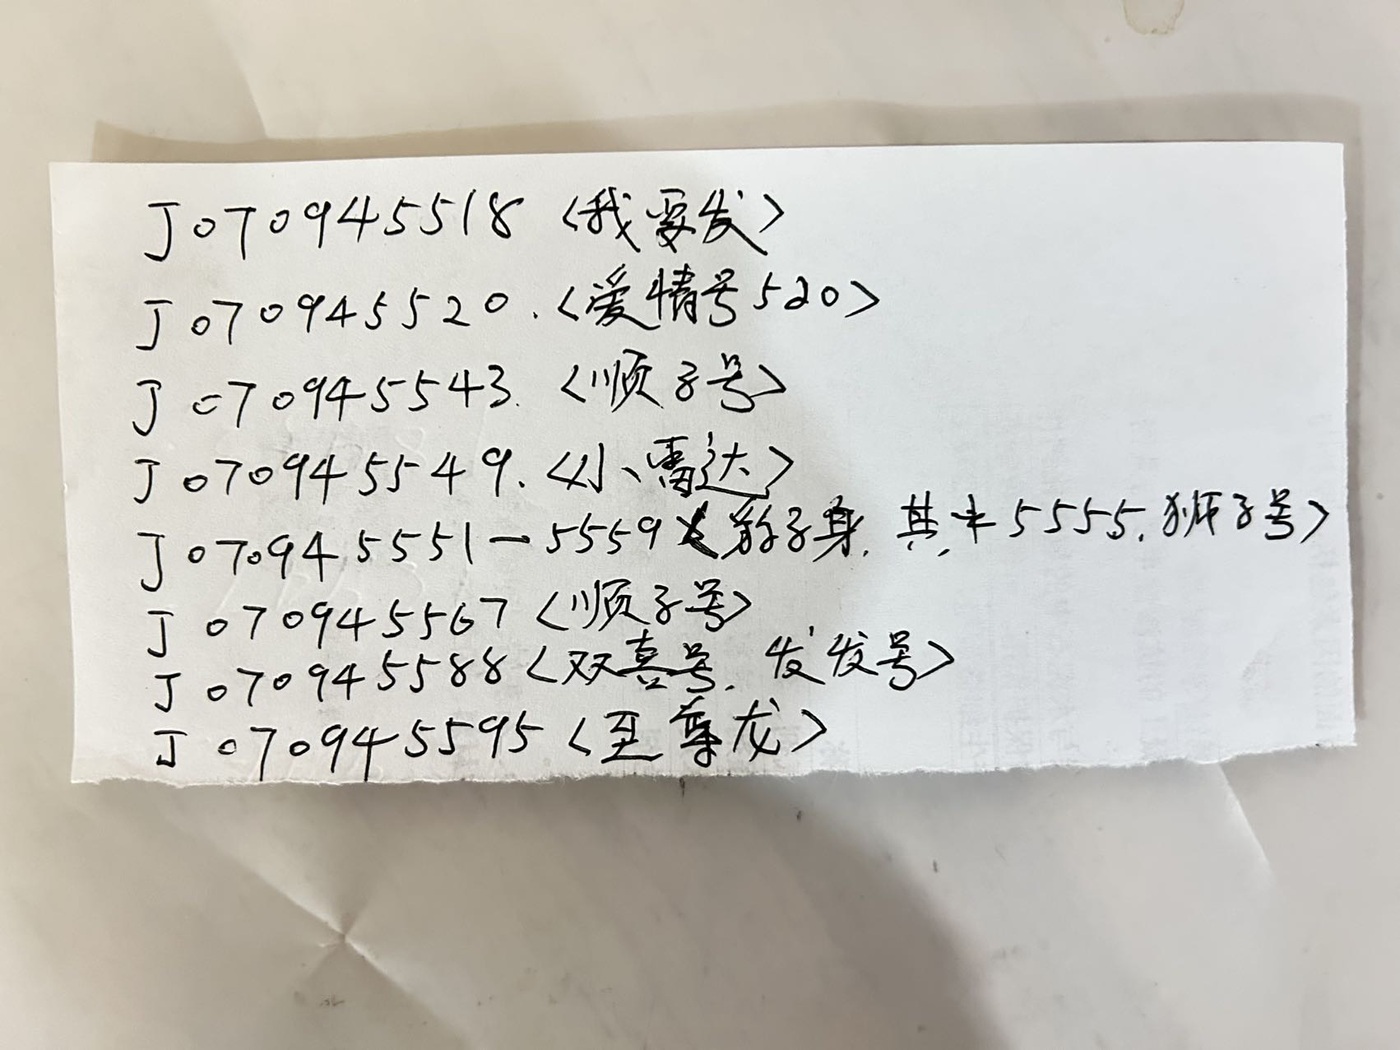 J070945518〈我要发〉
J070945520.〈爱情号520〉
J070945543.〈顺子号〉
J070945549.〈小雷达〉
J070945551—5559〈豹子身.其中5555.狮子号〉
J070945567〈顺子号〉
J070945588〈双真号.发发号〉
J070945595〈至尊龙〉